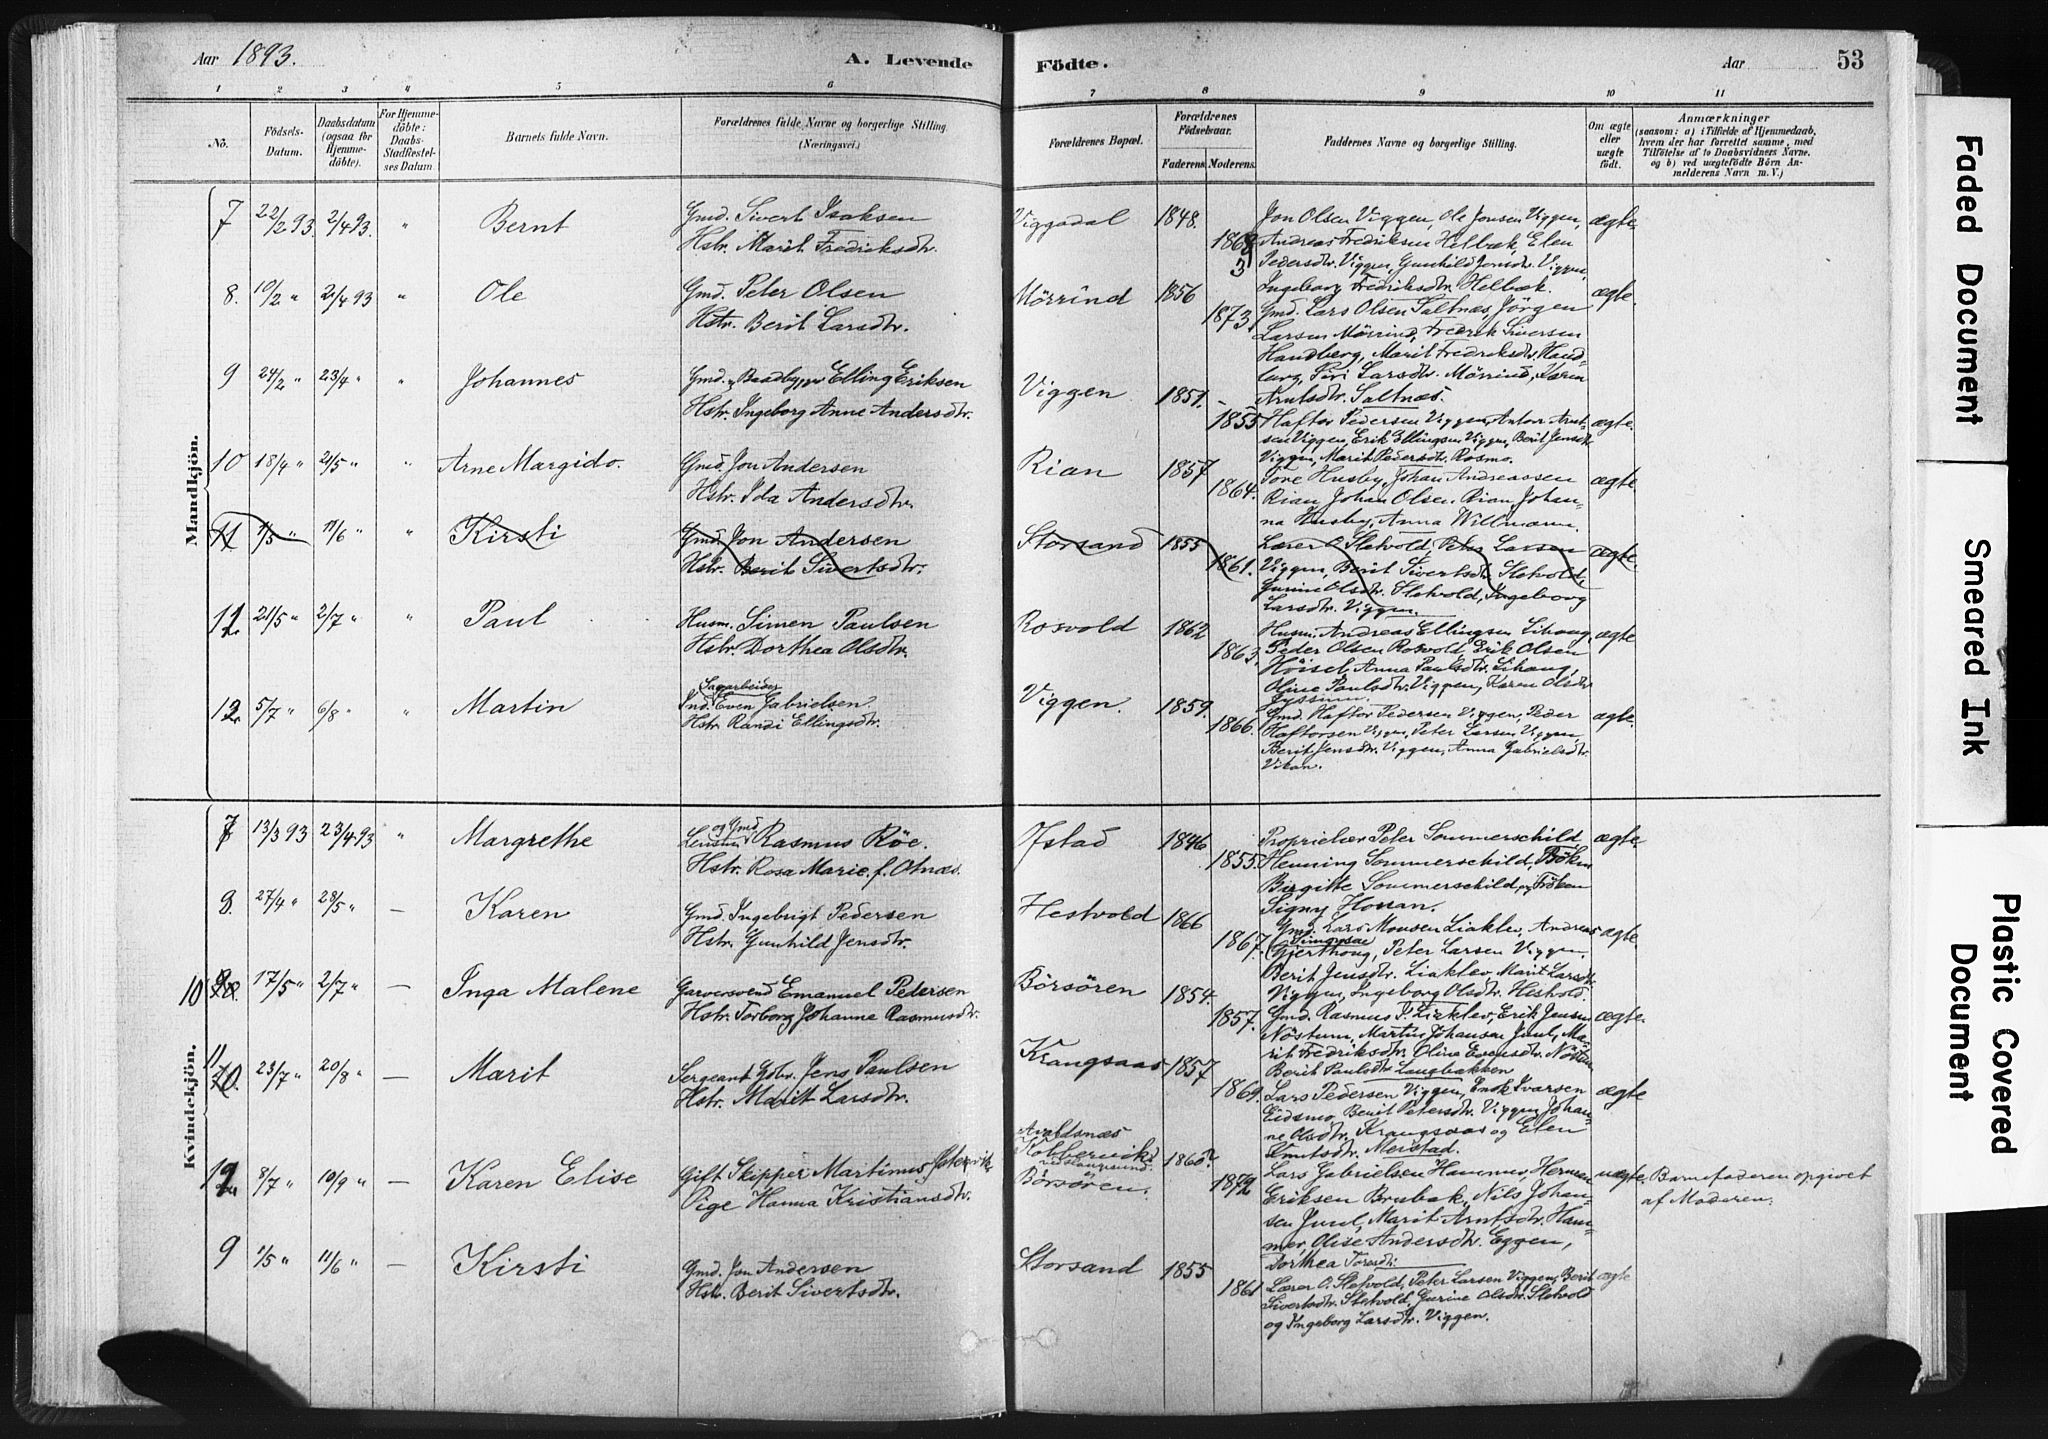 Aar 1893.
A. Levende
Födte.
Aar
53
1 2 3 4 5 6 7 8 9 10 11
No.
Födsels-
Datum.
Daabsdatum
(ogsaa for
Hjemme-
döbte).
For Hjemme-
döbte:
Daabs-
Stadfæstel-
ses Datum
Barnets fulde Navn.
Forældrenes fulde Navne og borgerlige Stilling.
(Næringsvei.)
Forældrenes Bopæl.
Forældrenes
Födselsaar.
Faderens. Moderens.
Faddernes Navne og borgerlige Stilling.
Om ægte
eller
uægte
födt.
Anmærkninger
(saasom: a) i Tilfælde af Hjemmedaab,
hvem der har forrettet samme, med
Tilföielse af to Daabsvidners Navne,
og b) ved uægtefödte Börn An-
melderens Navn m. V.)
Mandkjön.
7 22/2 93. 2/4 93. " Bernt
Gmd. Sivert Isaksen
Hstr. Marit Fredriksdtr.
Viggadal 1848.
1868
3
Jon Olsen Viggen, Ole Jonsen Viggen,
Andreas Fredriksen Helbæk, Elen
Pedersdtr. Viggen, Gunhild Jonsdtr. Viggen,
Ingeborg Fredriksdtr. Helbæk.
ægte.
8. 10/2 " 2/4 93 " Ole
Gmd. Peter Olsen
Hstr. Berit Larsdtr.
Mörrind 1856
1873.
Gmd. Lars Olsen Saltnæs, Jörgen
Larsen Mörrind, Fredrik Siversen
Handberg, Marit Fredriksdtr. Hand-
berg, Siri Larsdtr. Mörrind, Karen
Arntsdtr. Saltnæs.
ægte.
9 24/2 " 23/4 " " Johannes
Gmd. Elling Eriksen
Hstr. Ingeborg Anne Andersdtr.
Viggen 1851.
1855
Haftor Pedersen Viggen, Anton Arnt-
sen Viggen, Erik Ellingsen Viggen, Berit Jensdtr.
Viggen, Marit Pedersdtr. Rosmo.
ægte.
10 18/4 " 21/5 " " Arne Margido.
Gmd. Jon Andersen
Hstr. Ida Andersdtr.
Rian 1857
1864.
Tore Husby, Johan Andreassen
Rian, Johan Olsen Rian, Johan-
na Husby, Anna Willmann.
ægte.
11 1/5 " 11/6 " Kirsti
Gmd. Jon Andersen
Hstr. Berit Sivertsdtr.
Storsand 1855
1861.
Lærer O. Stetvold, Peter Larsen
Viggen, Berit Sivertsdtr. Stetvold,
Gurine Olsdtr. Stetvold, Ingeborg
Larsdtr. Viggen.
ægte.
11 21/5 " 2/7 " " Paul
Husm. Simen Paulsen
Hstr. Dorthea Olsdtr.
Rosvold 1862
1863.
Husm. Andreas Ellingsen Lihaug,
Peder Olsen Rosvold, Erik Olsen
Höisel, Anna Paulsdtr. Lihaug,
Oline Paulsdtr. Viggen, Karen Olsdtr.
ægte
12 5/7 " 6/8 " " Martin
Sagarbeider
Ind. Even Gabrielsen.
Hstr. Randi Ellingsdtr.
Viggen. 1859.
1866.
Gmd. Haftor Pedersen Viggen, Peder
Haftorsen Viggen, Peter Larsen Viggen,
Berit Jensdtr. Viggen, Anna Gabrielsdtr.
Vikan.
ægte.
Kvindekjön.
7 13/3 93 23/4 93 " Margrethe
og Gmd.
Lensmd Rasmus Röe.
Hstr. Rosa Marie f. Otnæs.
Ystad 1846
1855.
Proprietær Peter Sommerschild,
Henning Sommerschild, Fröken
Birgitte Sommerschild, og Fröken
Signy Hossan.
ægte
8. 27/4 " 28/5 " — Karen
Gmd. Ingebrigt Pedersen
Hstr. Gunhild Jensdtr.
Hestvold 1866
1867.
Gmd. Lars Monsen Liaklev, Andreas
Gjerthoug, Peter Larsen Viggen,
Berit Jensdtr. Liaklev, Marit Larsdtr.
Viggen, Ingeborg Olsdtr. Hestvold.
ægte.
10 17/5 " 2/7 " — Inga Malene
Garversvend Emanuel Pedersen
Hstr. Torborg Johanne Rasmusdtr.
Börsören 1854.
1857.
Gmd. Rasmus P. Liaklev, Erik Jensen
Nöstum, Martin Johansen Juul, Ma-
rit Fredriksdtr. Oline Evensdtr. Nöstum
Berit Paulsdtr. Laugbakken
ægte.
11 23/7 " 20/8 " — Marit
Sergeant Gbr. Jens Paulsen
Hstr. Marit Larsdtr.
Krangsaas 1857
1869.
Lars Pedersen Viggen, Endr. Ivarsen
Eidsmo, Berit Petersdtr. Viggen, Johan-
ne Olsdtr. Krangsaas og Elen
Knutsdtr. Meistad.
ægte
12 8/7 " 10/9 " — Karen Elise
Gift Skipper Martinus
Pige Hanna Kristiansdtr.
Avaldsnæs
Kobbervik
Börsören. 1860?
1872
Lars Gabrielsen Hammer, Herman
Eriksen Brubak, Nils Johan-
sen Juul, Marit Arntsdtr. Ham-
mer, Olise Andersdtr. Eggen,
Dorthea Toresdtr.
uægte. Barnefaderen opgivet
af Moderen.
9 1/5 " 11/6 " — Kirsti
Gmd. Jon Andersen
Hstr. Berit Sivertsdtr.
Storsand 1855
1861
Lærer O. Stetvold, Peter Larsen Viggen, Berit
Sivertsdtr. Stetvold, Gurine Olsdtr. Stetvold
og Ingeborg Larsdtr. Viggen.
ægte
Faded Document
Smeared Ink
Plastic Covered
Document